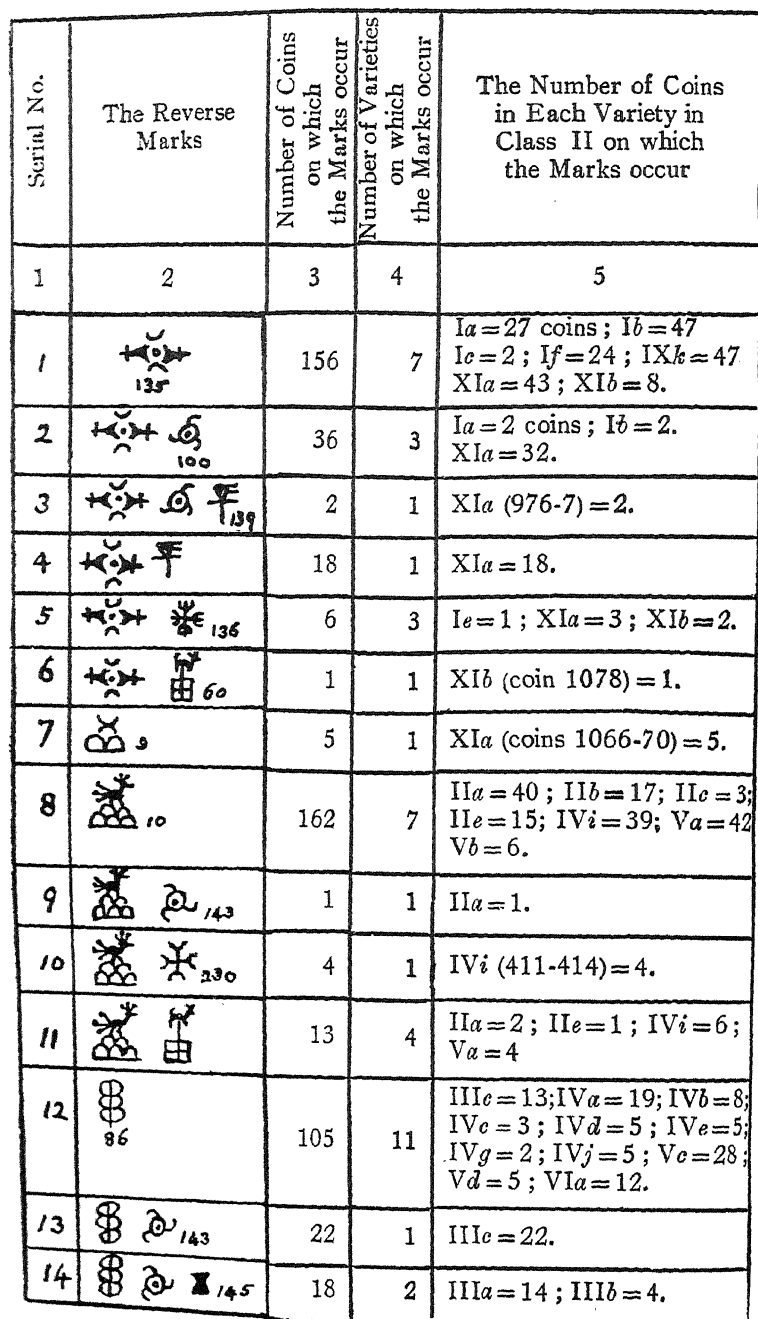 Serial No.
The Reverse
Marks
Number of Coins
on which
the Marks occur
Number of Varieties
on which
the Marks occur
The Number of Coins
in Each Variety in
Class II on which
the Marks occur
1 2 3 4 5
1 135 156 7 Ia=27 coins; Ib=47
Ic=2; If=24; IXk=47
XIa=43; XIb=8.
2 100 36 3 Ia=2 coins; Ib=2.
XIa=32.
3 139 2 1 XIa (976-7)=2.
4 18 1 XIa=18.
5 136 6 3 Ie=1; XIa=3; XIb=2.
6 60 1 1 XIb (coin 1078)=1.
7 9 5 1 XIa (coins 1066-70)=5.
8 10 162 7 IIa=40; IIb=17; IIc=3;
IIe=15; IVi=39; Va=42
Vb=6.
9 143 1 1 IIa=1.
10 230 4 1 IVi (411-414)=4.
11 13 4 IIa=2; IIe=1; IVi=6;
Va=4
12 86 105 11 IIIc=13;IVa=19; IVb=8;
IVc=3; IVd=5; IVe=5;
IVg=2; IVj=5; Vc=28;
Vd=5; VIa=12.
13 143 22 1 IIIc=22.
14 145 18 2 IIIa=14; IIIb=4.